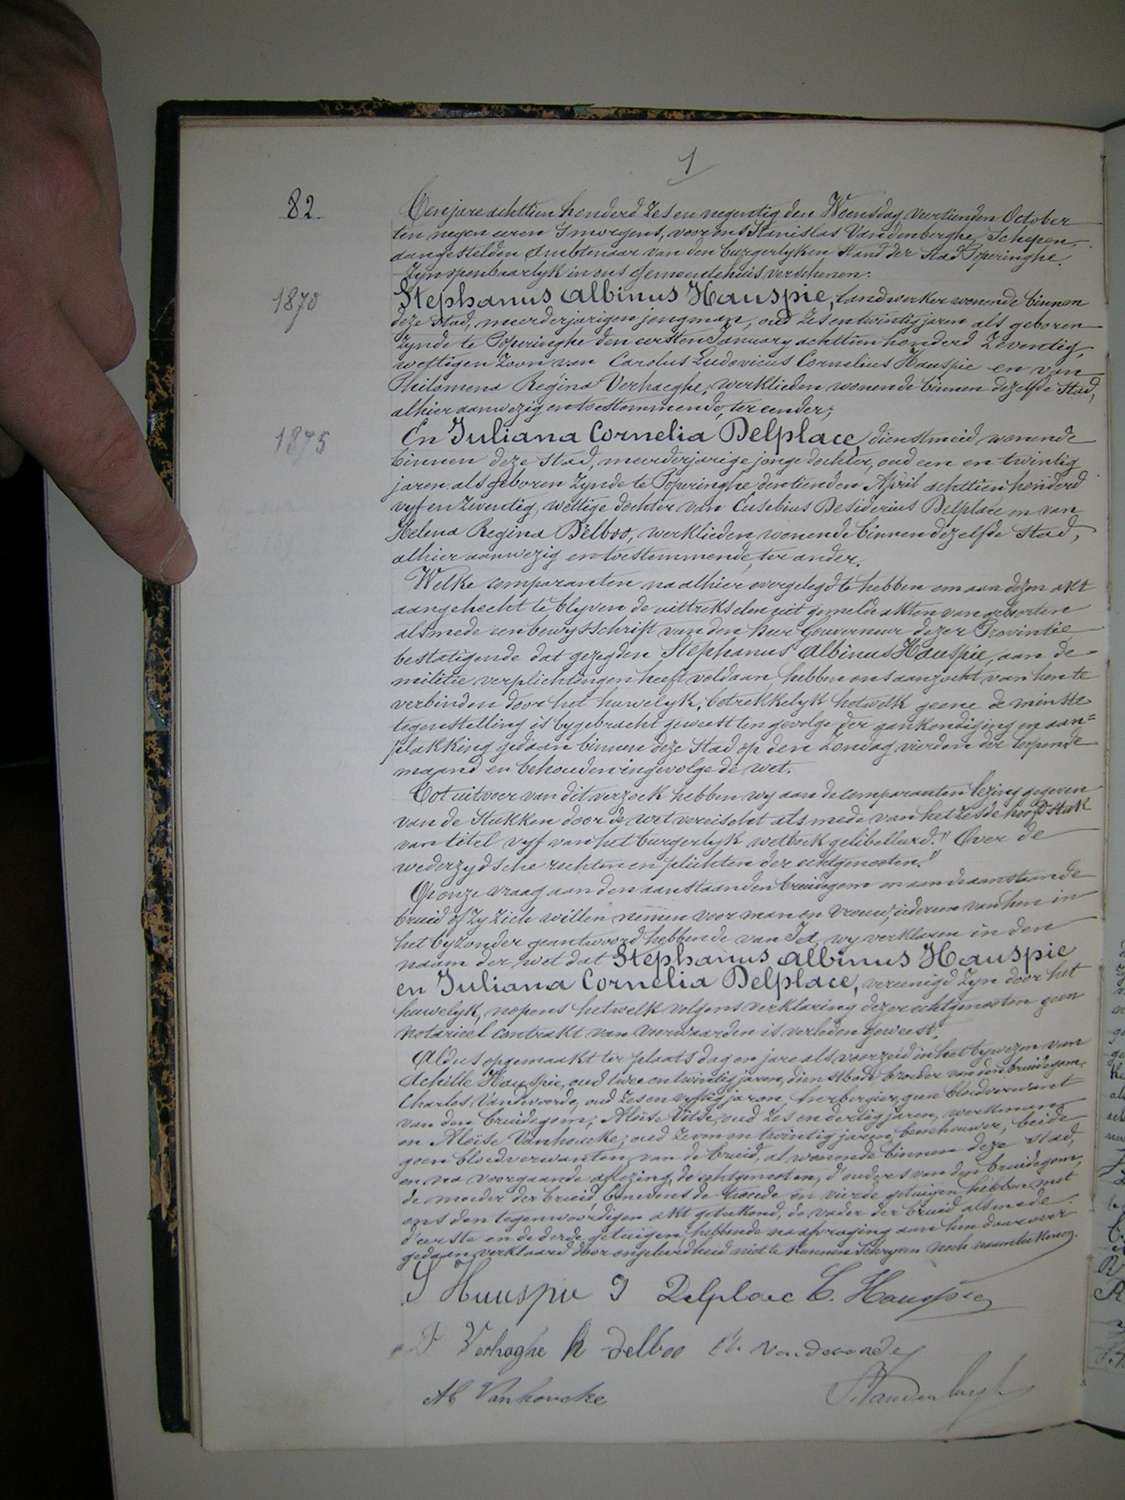 1
82 Ten jare achttien honderd zes en negentig den Woensdag veertienden October
ten negen uren 's morgens, voor ons Stanislas Vandenberghe, Schepen,
aangestelden Ambtenaar van den burgerlyken stand der Stad Poperinghe,
zyn openbaarlyk in ons Gemeentehuis verschenen:
1870 Stephanus Albinus Hauspie, landwerker wonende binnen
deze stad, meerderjarigen jongman, oud zes en twintig jaren als geboren
zynde te Poperinghe den eersten January achttien honderd zeventig,
wettigen zoon van Carolus Ludovicus Cornelius Hauspie en van
Philomena Regina Verhaeghe, werklieden wonende binnen dezelfde stad,
alhier aanwezig en toestemmende, ter eender;
1875 En Juliana Cornelia Delplace, dienstmeid, wonende
binnen deze stad, meerderjarige jonge dochter, oud een en twintig
jaren als geboren zynde te Poperinghe den tienden April achttien honderd
vyf en zeventig, wettige dochter van Eusebius Desiderius Delplace en van
Helena Regina Delboo, werklieden wonende binnen dezelfde stad,
alhier aanwezig en toestemmende, ter ander.
Welke comparanten na alhier overgelegd te hebben om aan dezen akt
aangehecht te blyven de uittrekselen uit gemelde akten van geboorten
alsmede een bewysschrift van den heer Gouverneur dezer Provintie
bestatigende dat gezegden Stephanus Albinus Hauspie, aan de
militie verplichtingen heeft voldaan hebben ons aanzocht van hen te
verbinden door het huwelyk, betrekkelyk hetwelk geene de minste
tegenstelling is bygebracht geweest ten gevolge der aankondiging en aan=
plakking gedaan binnen deze Stad op den Zondag vierden der loopende
maand en behouden ingevolge de wet.
Tot uitvoer van dit verzoek hebben wy aan de comparanten lezing gegeven
van de stukken door de wet vereischt alsmede van het zesde hoofdstuk
van titel vyf van het burgerlyk wetboek gelibelleerd: "Over de
wederzydsche rechten en plichten der echtgenooten."
Op onze vraag aan den aanstaanden bruidegom en aan de aanstaande
bruid of zy zich willen nemen voor man en vrouw, iedereen van hen in
het byzonder geantwoord hebbende van Ja, wy verklaren in den
naam der wet dat Stephanus Albinus Hauspie
en Juliana Cornelia Delplace, vereenigd zyn door het
huwelyk, nopens hetwelk volgens verklaring dezer echtgenooten geen
notarieel contrakt van voorwaarden is verleden geweest.
Aldus opgemaakt ter plaats dag en jare als voorzeid in het bywezen van
Achille Hauspie, oud twee en twintig jaren, dienstbode broeder van den bruidegom,
Charles Vandevoorde, oud zes en vyftig jaren, herbergier, geen bloedverwant
van den bruidegom; Aloïse Visse, oud zes en dertig jaren, werkman,
en Aloïse Vanhoucke, oud zeven en twintig jaren, beenhouwer, beide
geen bloedverwanten van de bruid, al wonende binnen deze stad,
en na voorgaande aflezing, de echtgenooten, d'ouders van den bruidegom,
de moeder der bruid, benevens de tweede en vierde getuigen hebben met
ons den tegenwoordigen akt geteekend, de vader der bruid alsmede
d'eerste en de derde getuigen, hebbende na afvraging aan hen daarover
gedaan verklaard door ongeleerdheid niet te kunnen schryven noch naamteekenen.
S Hauspie J Delplace C. Hauspie
F Verhaghe h delboo Ch. Vandevoorde
Al Vanhoucke S. Vandenberghe